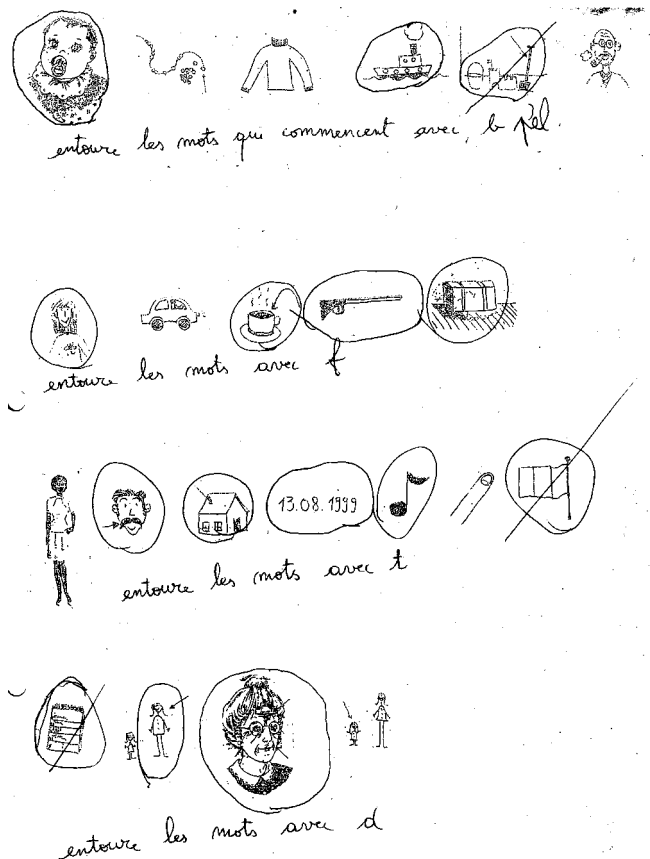 entoure les mots qui commencent avec b
entoure les mots avec f
13.08.1999
entoure les mots avec t
entoure les mots avec d